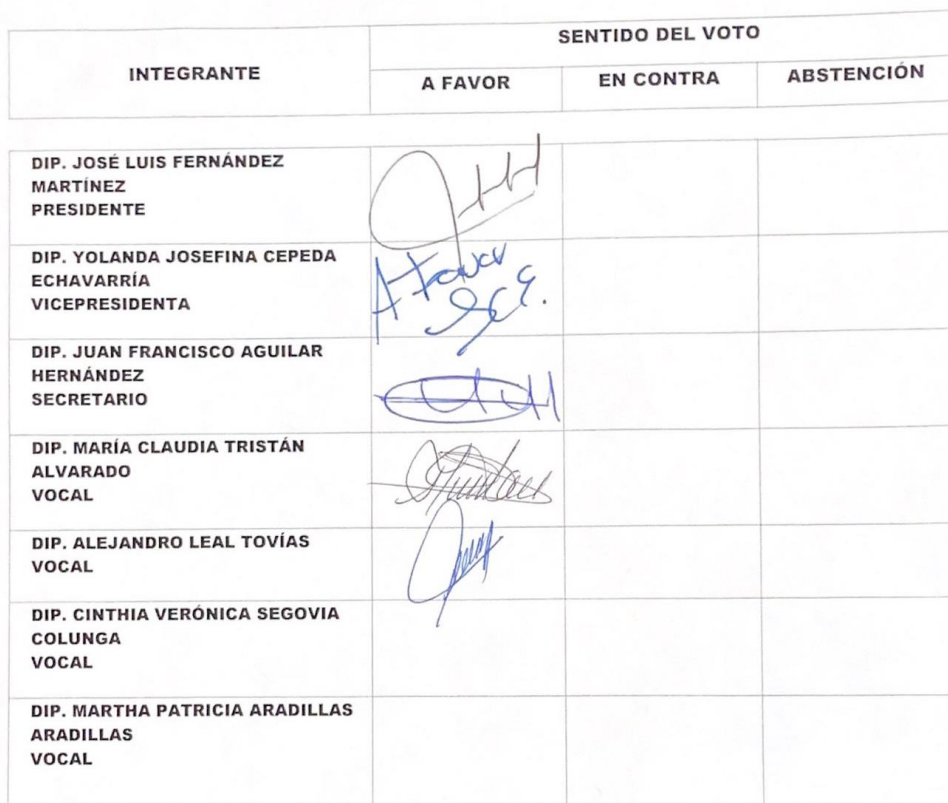 INTEGRANTE
SENTIDO DEL VOTO
A FAVOR
EN CONTRA
ABSTENCIÓN
DIP. JOSÉ LUIS FERNÁNDEZ
MARTÍNEZ
PRESIDENTE
DIP. YOLANDA JOSEFINA CEPEDA
ECHAVARRÍA
VICEPRESIDENTA
A Favor
DIP. JUAN FRANCISCO AGUILAR
HERNÁNDEZ
SECRETARIO
DIP. MARÍA CLAUDIA TRISTÁN
ALVARADO
VOCAL
DIP. ALEJANDRO LEAL TOVÍAS
VOCAL
DIP. CINTHIA VERÓNICA SEGOVIA
COLUNGA
VOCAL
DIP. MARTHA PATRICIA ARADILLAS
ARADILLAS
VOCAL